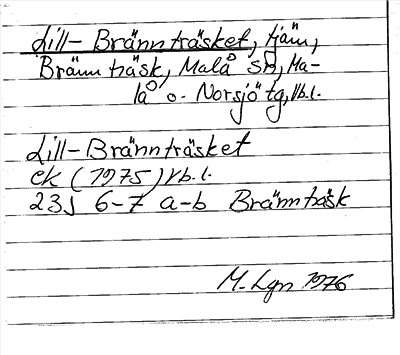 Lill-Brännträsket, tjäm,
Brännträsk, Malå sn, Ma-
lå o. Norsjö tg, Vb.l.
Lill-Brännträsket
ek (1975) Vb.l.
23J 6-7 a-b Brännträsk
M. Lgn 1976